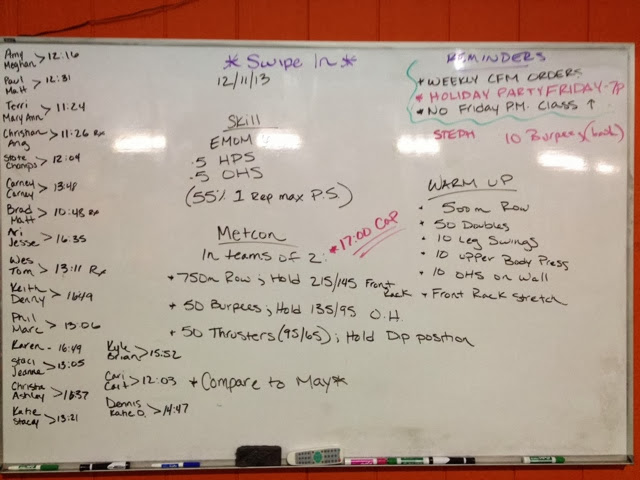 Amy
Meghan > 12:16
Paul
Matt > 12:31
Terri
Mary Ann > 11:24
Christian
Ang > 11:26 Rx
State
Champs > 12:04
Carney
Carney > 13:48
Brad
Matt > 10:48 Rx
Ari
Jesse > 16:35
Wes
Tom > 13:11 Rx
Keith
Denny > 16:49
Phil
Marc > 13:06
Karen - 16:49
Staci
Jeanne > 13:05
Christa
Ashley > 16:37
Katie
Stacey > 13:21
Kyle
Brian > 15:52
Cari
Cait > 12:03
Dennis
Katie O. > 14:47
* Swipe In *
12/11/13
Skill
EMOM
.5 HPS
.5 OHS
(55% 1 Rep max P.S.)
Metcon
In teams of 2: * 17:00 Cap
* 750m Row ; Hold 215/145 Front Rack
* 50 Burpees ; Hold 135/95 O.H.
* 50 Thrusters (95/65) ; Hold Dip position
* Compare to May *
REMINDERS
* WEEKLY CFM ORDERS
* HOLIDAY PARTY FRIDAY - 7p
* No Friday P.M. Class ↑
STEPH 10 Burpees
WARM UP
* 500m Row
* 50 Doubles
* 10 Leg Swings
* 10 Upper Body Press
* 10 OHS on Wall
* Front Rack Stretch